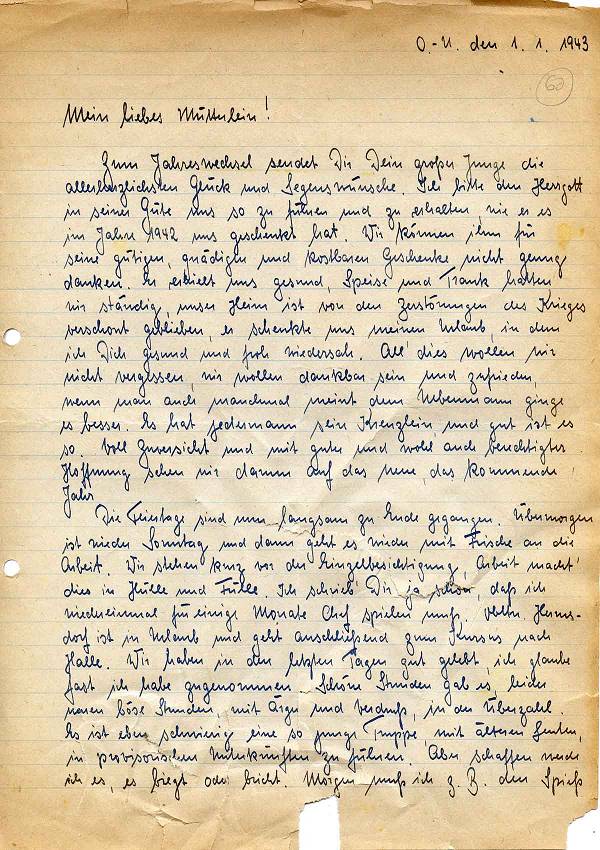 O.-U. den 1. 1. 1943
60
Mein liebes Mütterlein!
Zum Jahreswechsel sendet Dir Dein großer Junge die
allerherzlichsten Glück und Segenswünsche. Ich bitte den Herrgott
in seiner Güte uns so zu führen und zu erhalten, wie er es
im Jahre 1942 uns geschenkt hat. Wir können ihm für
seine gütigen, gnädigen und kostbaren Geschenke nicht genug
danken. Er erhielt uns gesund, Speise und Trank hatten
wir ständig, unser Heim ist von den Zerstörungen des Krieges
verschont geblieben, er schenkte uns meinen Urlaub, in dem
ich Dich gesund und froh wiedersah. All' dies wollen wir
nicht vergessen, wir wollen dankbar sein und zufrieden,
wenn man auch manchmal meint dem Nebenmann ginge
es besser. Es hat jedermann sein Kreuzlein und gut ist es
so. Voll Zuversicht und mit guter und wohl auch berechtigter
Hoffnung sehen wir darum auf das neue, das kommende
Jahr
Die Feiertage sind nun langsam zu Ende gegangen. Übermorgen
ist wieder Sonntag und dann geht es wieder mit Frische an die
Arbeit. Wir stehen kurz vor der Einzelbesichtigung, Arbeit macht
dies in Hülle und Fülle. Ich schrieb Dir ja schon, daß ich
wiedereinmal für einige Monate Chef spielen muß. Obltn. Herms-
dorf ist in Urlaub und geht anschließend zum Kursus nach
Halle. Wir haben in den letzten Tagen gut gelebt, ich glaube
fast ich habe zugenommen. Schöne Stunden gab es, leider
waren böse Stunden, mit Ärger und Verdruß, in der Überzahl.
Es ist eben schwierig eine so junge Truppe mit älteren Leuten,
in provisorischen Unterkünften zu führen. Aber schaffen werde
ich es, es biegt oder bricht. Morgen muß ich z. B. den Spieß